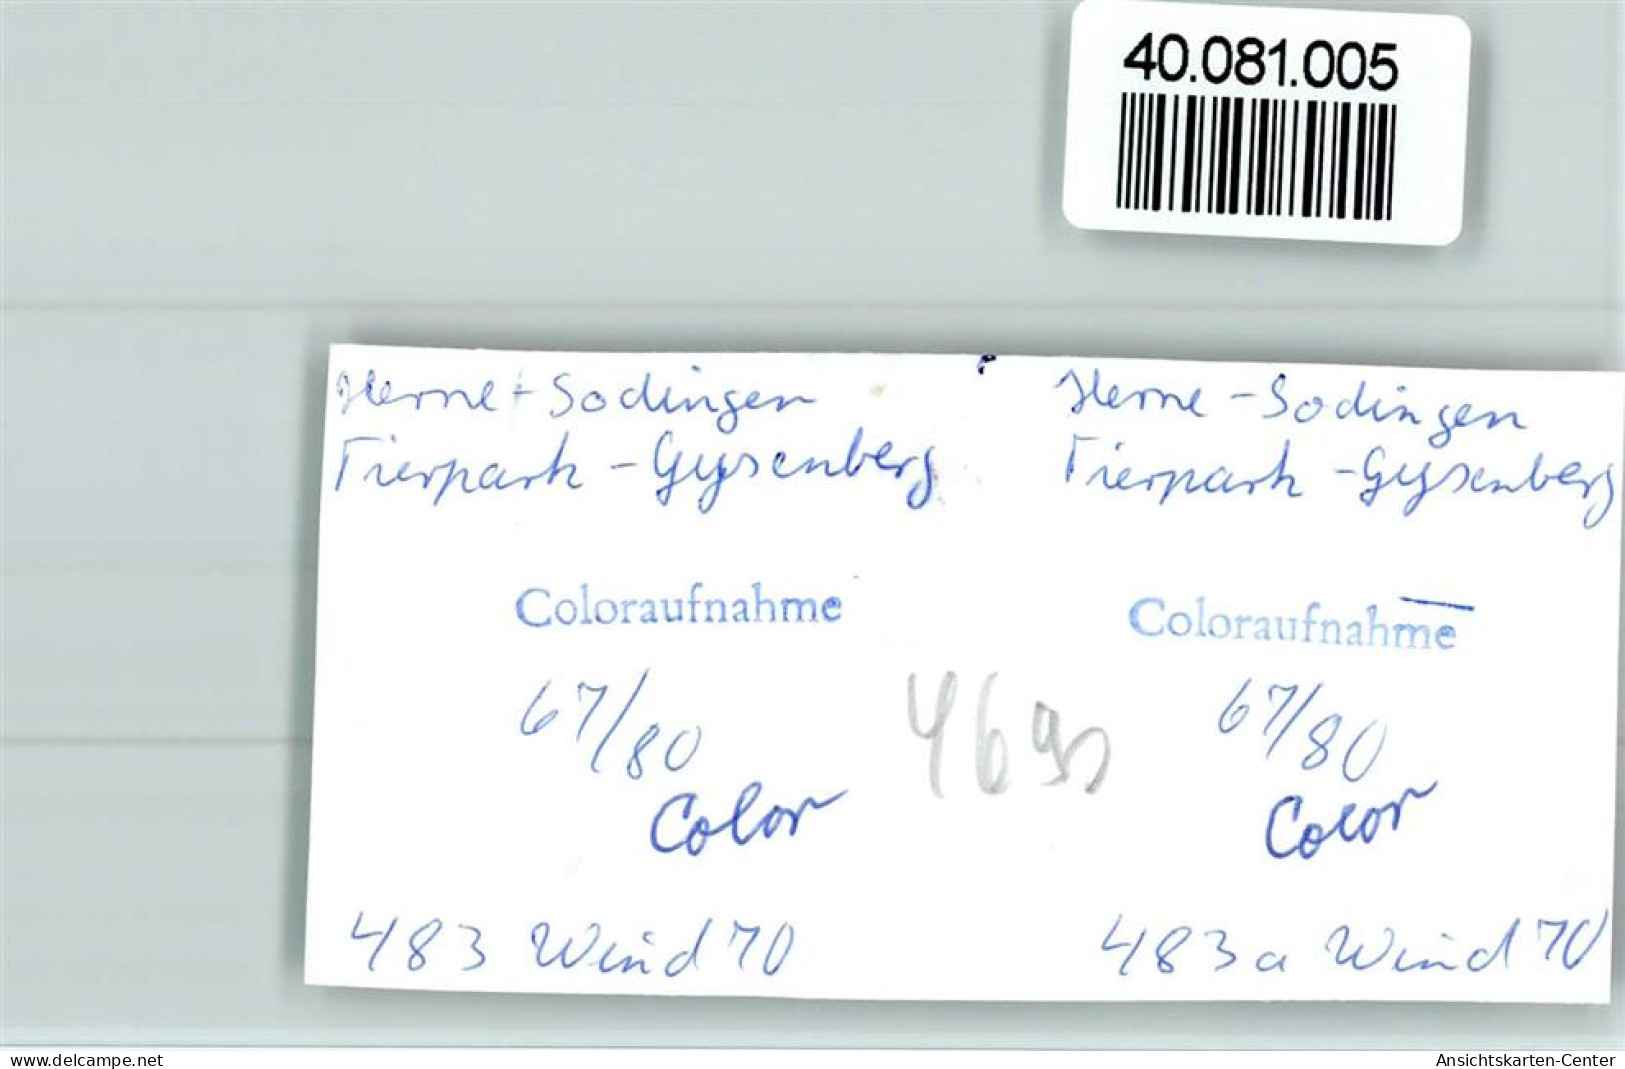 40.081.005
Herne - Sodingen
Tierpark - Gysenberg
Coloraufnahme
67/80
Color
483 Wind 70
Herne - Sodingen
Tierpark - Gysenberg
Coloraufnahme
67/80
Color
483a Wind 70
www.delcampe.net
Ansichtskarten-Center